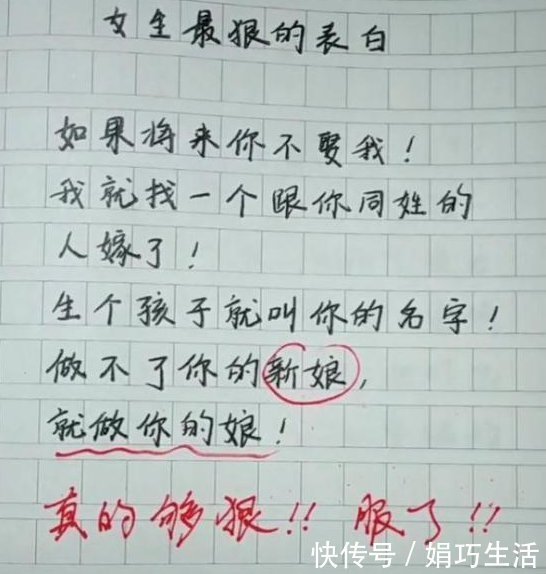 女生最狠的表白
如果将来你不娶我！
我就找一个跟你同姓的
人嫁了！
生个孩子就叫你的名字！
做不了你的新娘，
就做你的娘！
真的够狠！！服了！！
快传号/娟巧生活